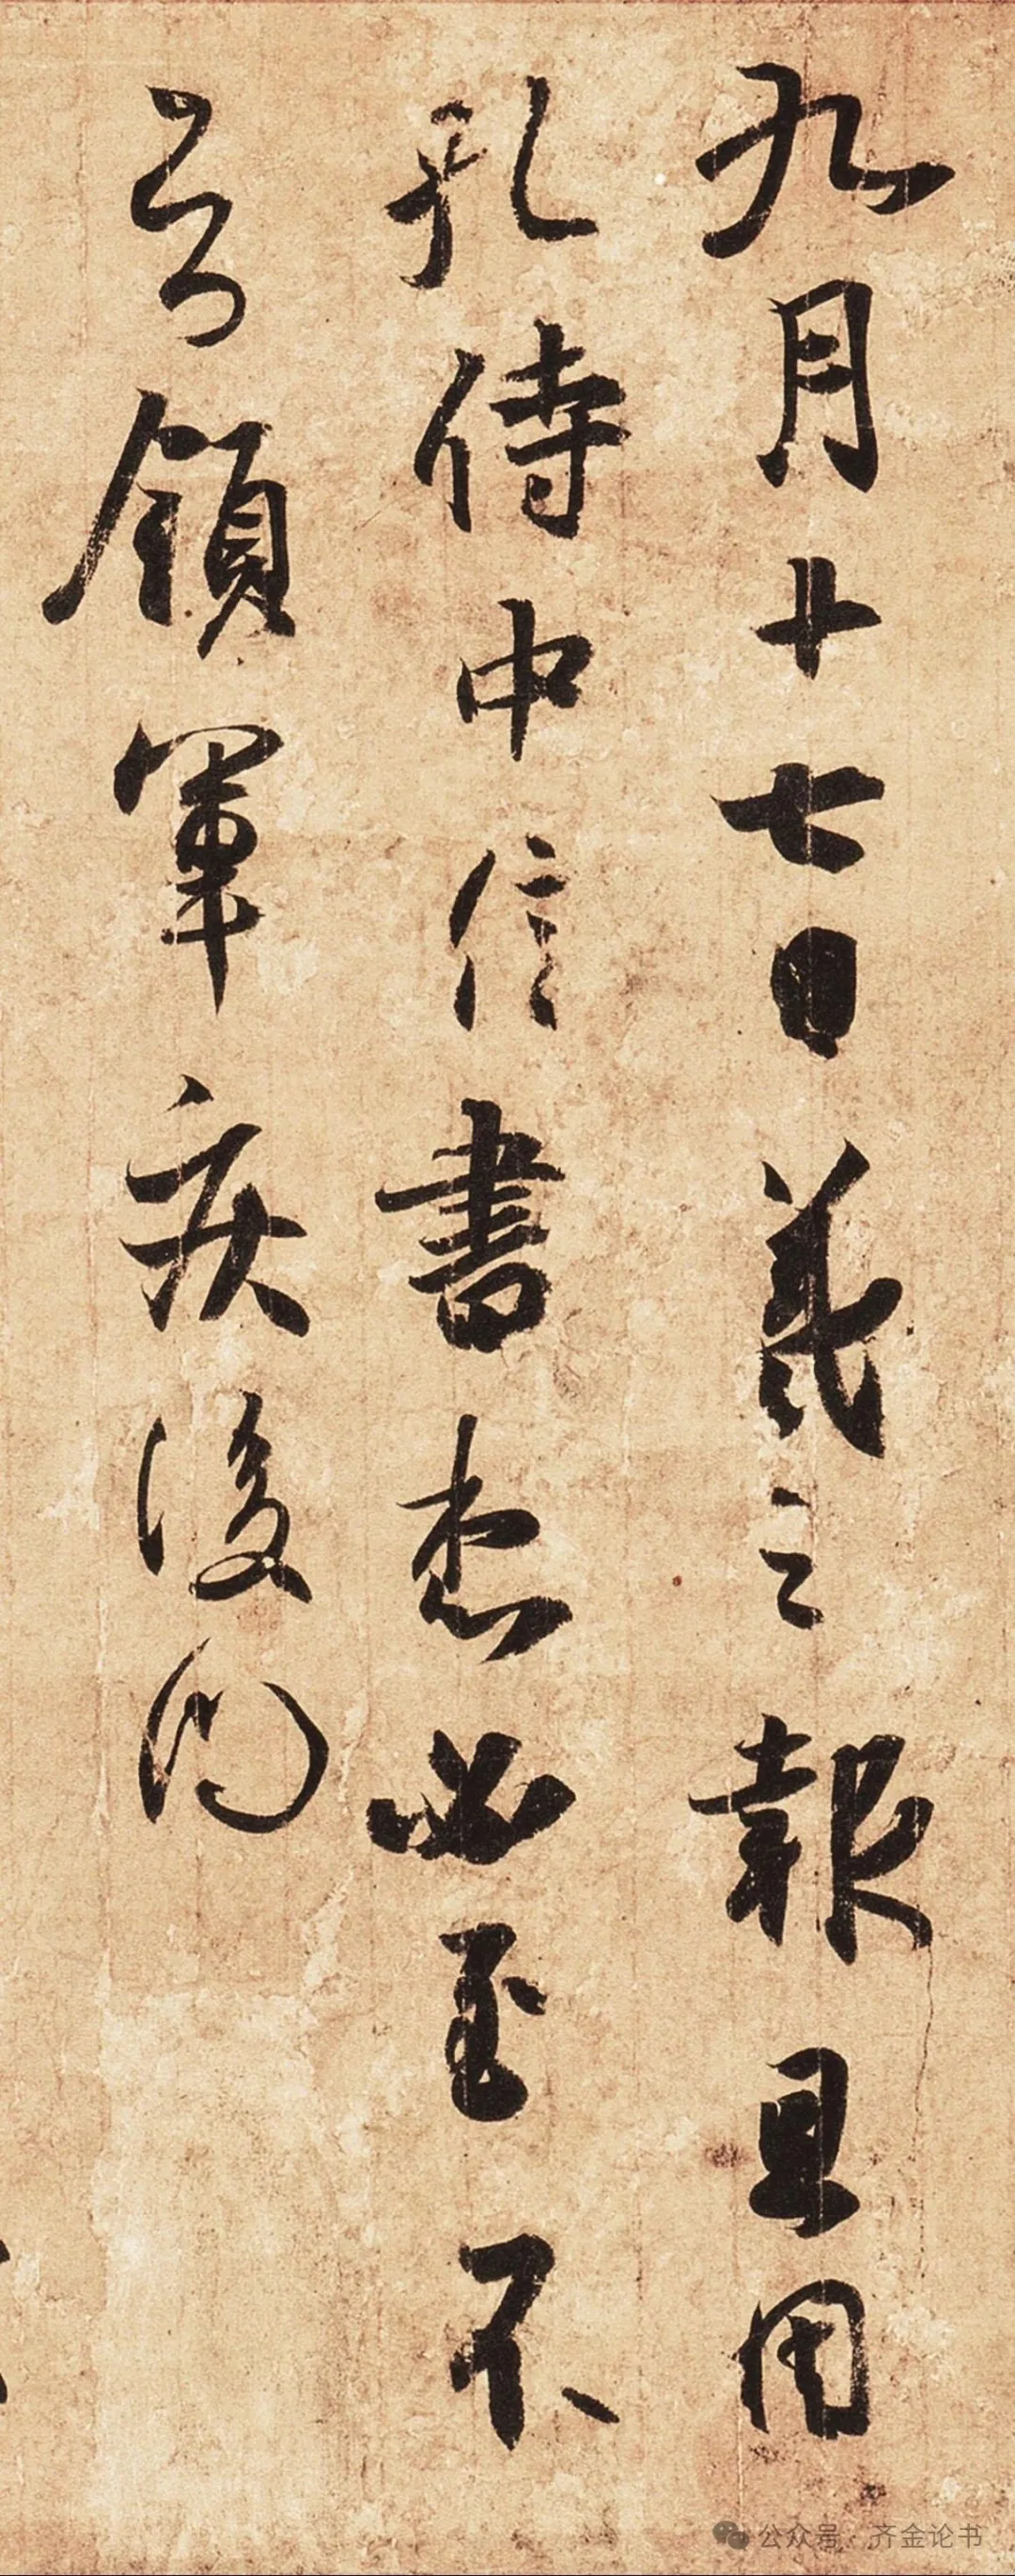 九月十七日羲之報且因
孔侍中信書想必至不
知領軍疾後問
公众号·齐金论书